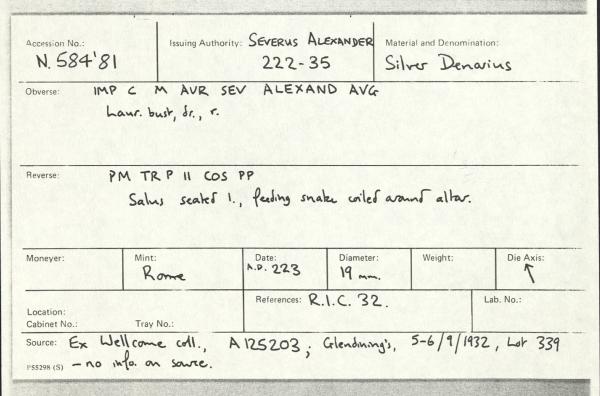 Accession No.: N.584'81
Issuing Authority: SEVERUS ALEXANDER 222-35
Material and Denomination: Silver Denarius
Obverse: IMP C M AVR SEV ALEXAND AVG
Laur. bust, dr., r.
Reverse: PM TR P II COS PP
Salus seated l., feeding snake coiled around altar.
Moneyer:
Mint: Rome
Date: A.D. 223
Diameter: 19 mm.
Weight:
Die Axis: ↖
Location:
Cabinet No.: Tray No.:
References: R.I.C. 32.
Lab. No.:
Source: Ex Wellcome coll., A125203; Glendining's, 5-6/9/1932, Lot 339
P55298 (S) - no info. on source.